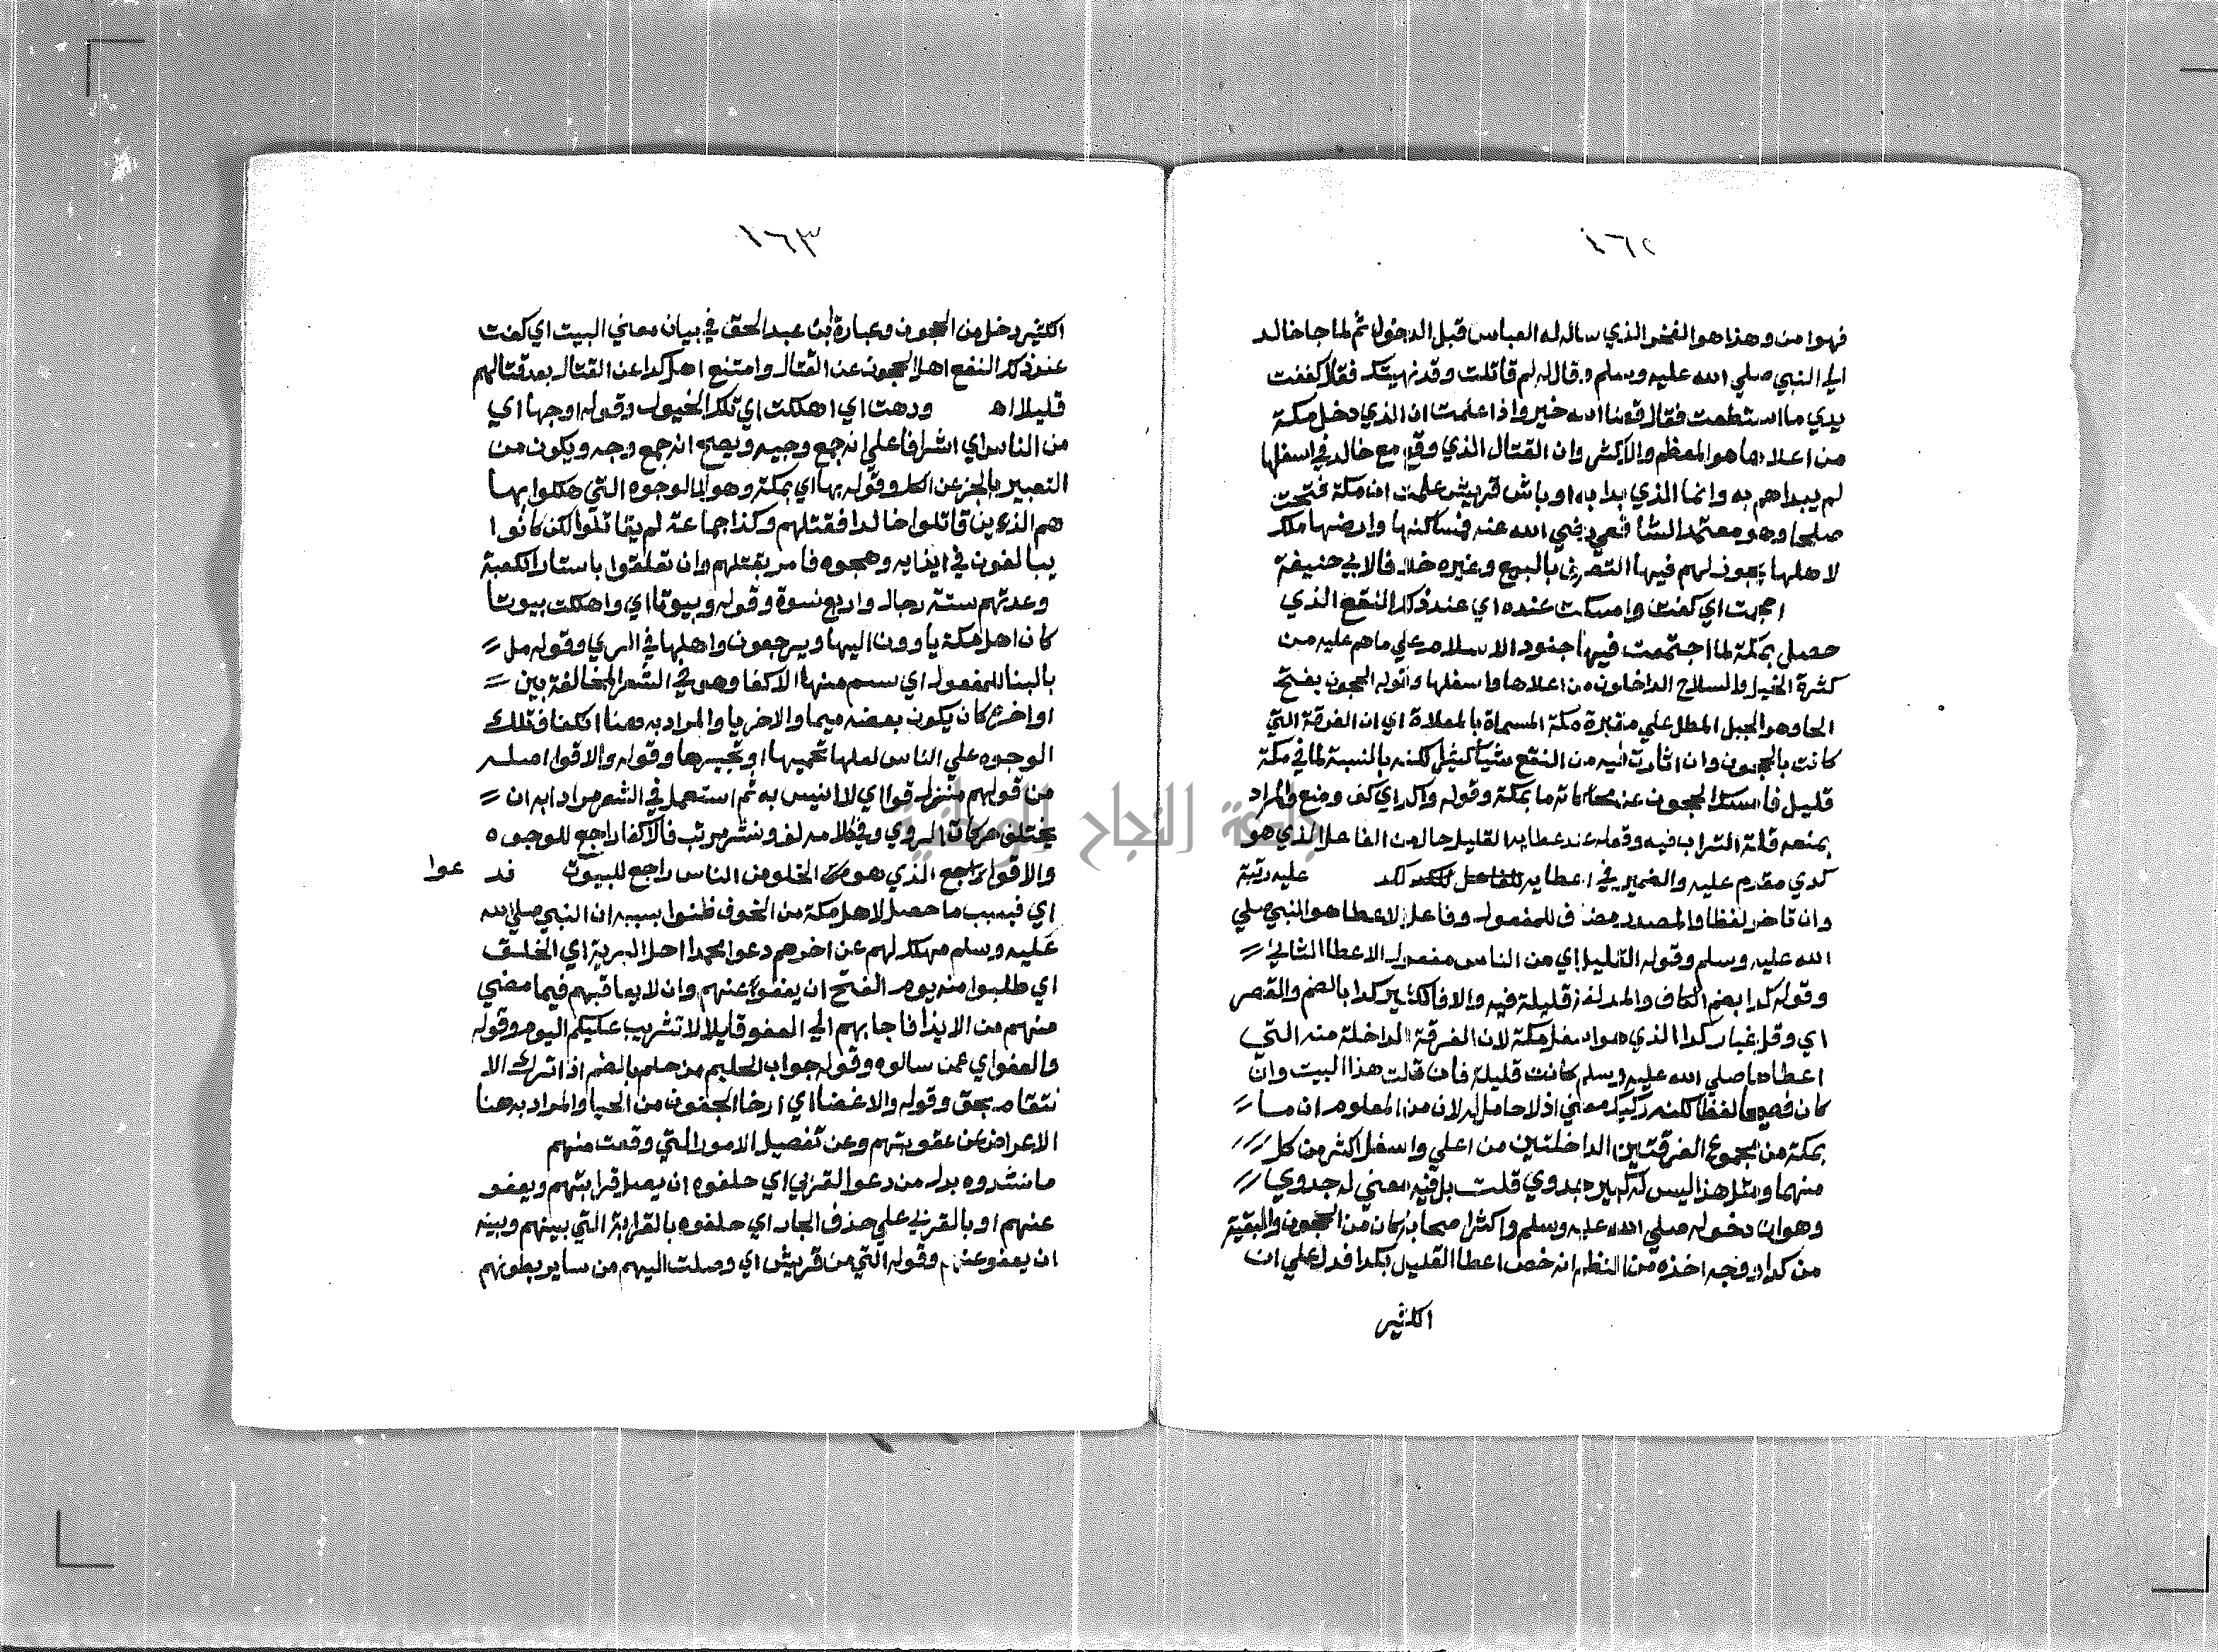 ١٦٢
فهوا من وهذا هوا الفخر الذي ساله له العباس قبل الدخول ثم لما جا خالد
الي النبي صلي الله عليه وسلم وقال له لم قاتلت وقد نهيتك فقال كففت
يدي ما استطعت فقال قضا الله خير واذا علمت ان الذي دخل مكة
من اعلاها هو المعظم والاكثر وان القتال الذي وقع مع خالد في اسفلها
لم يبداهم به وانما الذي بدا به اوباش قريش علمت ان مكة فتحت
صلحا وهو معتمد الشافعي رضي الله عنه فمساكنها وارضها ملك
لاهلها يجوز لهم فيها التصرف بالبيع وغيره خلافا لابي حنيفة
احجمت اي كفت وامسكت عنده اي عند ذكر النقع الذي
حصل بمكة لما اجتمعت فيها جنود الاسلام علي ما هم عليه من
كثرة الخيل والسلاح الداخلون من اعلاها واسفلها وقوله الحجون بفتح
الحا وهو الجبل المطل علي مقبرة مكة المسماة بالمعلاة اي ان الفرقة التي
كانت بالحجون وان اثارت فيه من النقع شيا كثير لكنه بالنسبة لما في مكة
قليل فامسك الحجون عن محاكاته ما بمكة وقوله واكدي اي كف ومنع والمراد
بمنعه قلة التراب فيه وقوله عند عطايه القليل حال من الفاعل الذي هو
كدي مقدم عليه والضمير في اعطايه للفاعل لكد لكد عليه رتبة
وان تاخر لفظا والمصدر مضاف للمفعول وفاعل الاعطا هو النبي صلي
الله عليه وسلم وقوله القليل اي من الناس مفعول الاعطا الثاني
وقوله كدا بضم الكاف والمد لغة قليلة فيه والا فالكثير كدا بالضم والقصر
اي وقل غبار كدا الذي هو اسفل مكة لان الفرقة الداخلة منه التي
اعطاها صلي الله عليه وسلم كانت قليلة فان قلت هذا البيت وان
كان فصيحا لفظا لكنه ركيك معني اذ لا حاصل له لان من المعلوم ان ما
بمكة من مجموع الفرقتين الداخلتين من اعلي واسفل اكثر من كل
منهما ومثل هذا ليس له كبير جدوي قلت بل فيه معني له جدوي
وهو ان دخوله صلي الله عليه وسلم واكثر اصحابه كان من الحجون والبقية
من كدا ووجه اخذه من النظم انه خص اعطا القليل بكدا فدل علي ان
الكثير
١٦٣
الكثير دخل من الحجون وعبارة ابن عبد الحق في بيان معني البيت اي كفت
عند ذكر النقع اهل الحجون عن القتال وامتنع اهل كدا عن القتال بعد قتالهم
قليلا اه ودهت اي اهلكت اي تلك الخيول وقوله اوجها اي
من الناس اي اشرافا علي انه جمع وجيه ويصح انه جمع وجه ويكون من
التعبير بالجز عن الكل وقوله بها اي بمكة وهو الوجوه التي هلكوا بها
هم الذين قاتلوا خالدا فقتلهم وكذا جماعة لم يقاتلوا لكن كانوا
يبالغون في ايذايه وهجوه فامر بقتلهم وان تعلقوا باستار الكعبة
وعدتهم ستة رجال واربع نسوة وقوله وبيوتا اي واهلكت بيوتا
كان اهل مكة ياوون اليها ويرجعون واهلها في الري وقوله مل
بالبنا للمفعول اي سيم منها الاكفا وهو في الشعر المخالفة بين
اواخره كان يكون بعضه ميما والاخر يا والمراد به هنا انكفا فتلك
الوجوه علي الناس لعلها تحميها او تجيرها وقوله والاقوا اصله
من قولهم منزل قوا اي لا انيس به ثم استعمل في الشعر مرادا به ان
يختلف حركات الروي وفي كلامه لف ونشر مرتب فالاكفا راجع للوجوه
والاقوا راجع الذي هو الخلو من الناس راجع للبيوت فد عوا
اي فبسبب ما حصل لاهل مكة من الخوف ظنوا بسببه ان النبي صلي الله
عليه وسلم مهلك لهم عن اخرهم دعوا محمدا احلم البرية اي الخلق
اي طلبوا منه يوم الفتح ان يعفوا عنهم وان لا يعاقبهم فيما مضي
منهم من الايذا فاجابهم الي العفو قايلا لا تثريب عليكم اليوم وقوله
والعفو اي عمن سالوه وقوله جواب الحليم من حلم بالضم اذا ترك الا
نتقام بحق وقوله والاغضا اي ارخا الجفون من الحيا والمراد به هنا
الاعراض عن عقوبتهم وعن تفصيل الامور التي وقعت منهم
ما نشدوه بدل من دعوا القربي اي حلفوه ان يصل قرابتهم ويعفو
عنهم او بالقربي علي حذف الجار اي حلفوه بالقرابة التي بينهم وبينه
ان يعفو عنهم وقوله التي من قريش اي وصلت اليهم من ساير بطونهم
جامعة النجاح الوطنية